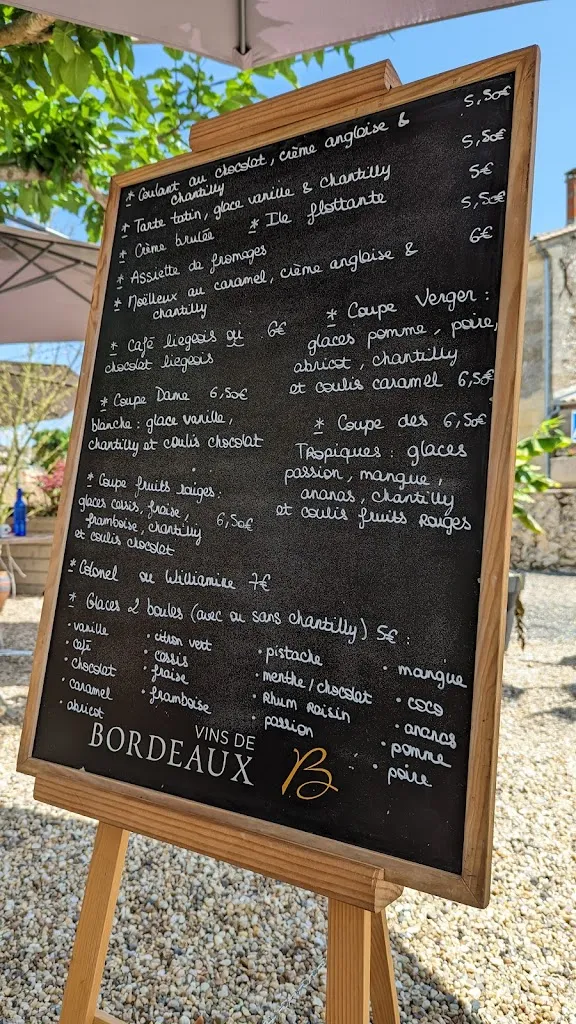 * Coulant au chocolat, crème anglaise & 5,50€
chantilly
* Tarte tatin, glace vanille & chantilly 5,50€
* Crème brulée * Ile flottante 5€
* Assiette de fromages 5,50€
* Moëlleux au caramel, crème anglaise & 6€
chantilly
* Café liegeois ou 6€
chocolat liegeois
* Coupe Verger :
glaces pomme, poire,
abricot, chantilly
et coulis caramel 6,50€
* Coupe Dame 6,50€
blanche : glace vanille,
chantilly et coulis chocolat
* Coupe des 6,50€
Tropiques : glaces
passion, mangue,
ananas, chantilly
et coulis fruits rouges
* Coupe fruits rouges :
glaces cassis, fraise,
framboise, chantilly 6,50€
et coulis chocolat
* Colonel ou Williamine 7€
* Glaces 2 boules (avec ou sans chantilly) 5€ :
• vanille
• café
• chocolat
• caramel
• abricot
• citron vert
• cassis
• fraise
• framboise
• pistache
• menthe/chocolat
• Rhum Raisin
• passion
• mangue
• coco
• ananas
• pomme
• poire
VINS DE
BORDEAUX B